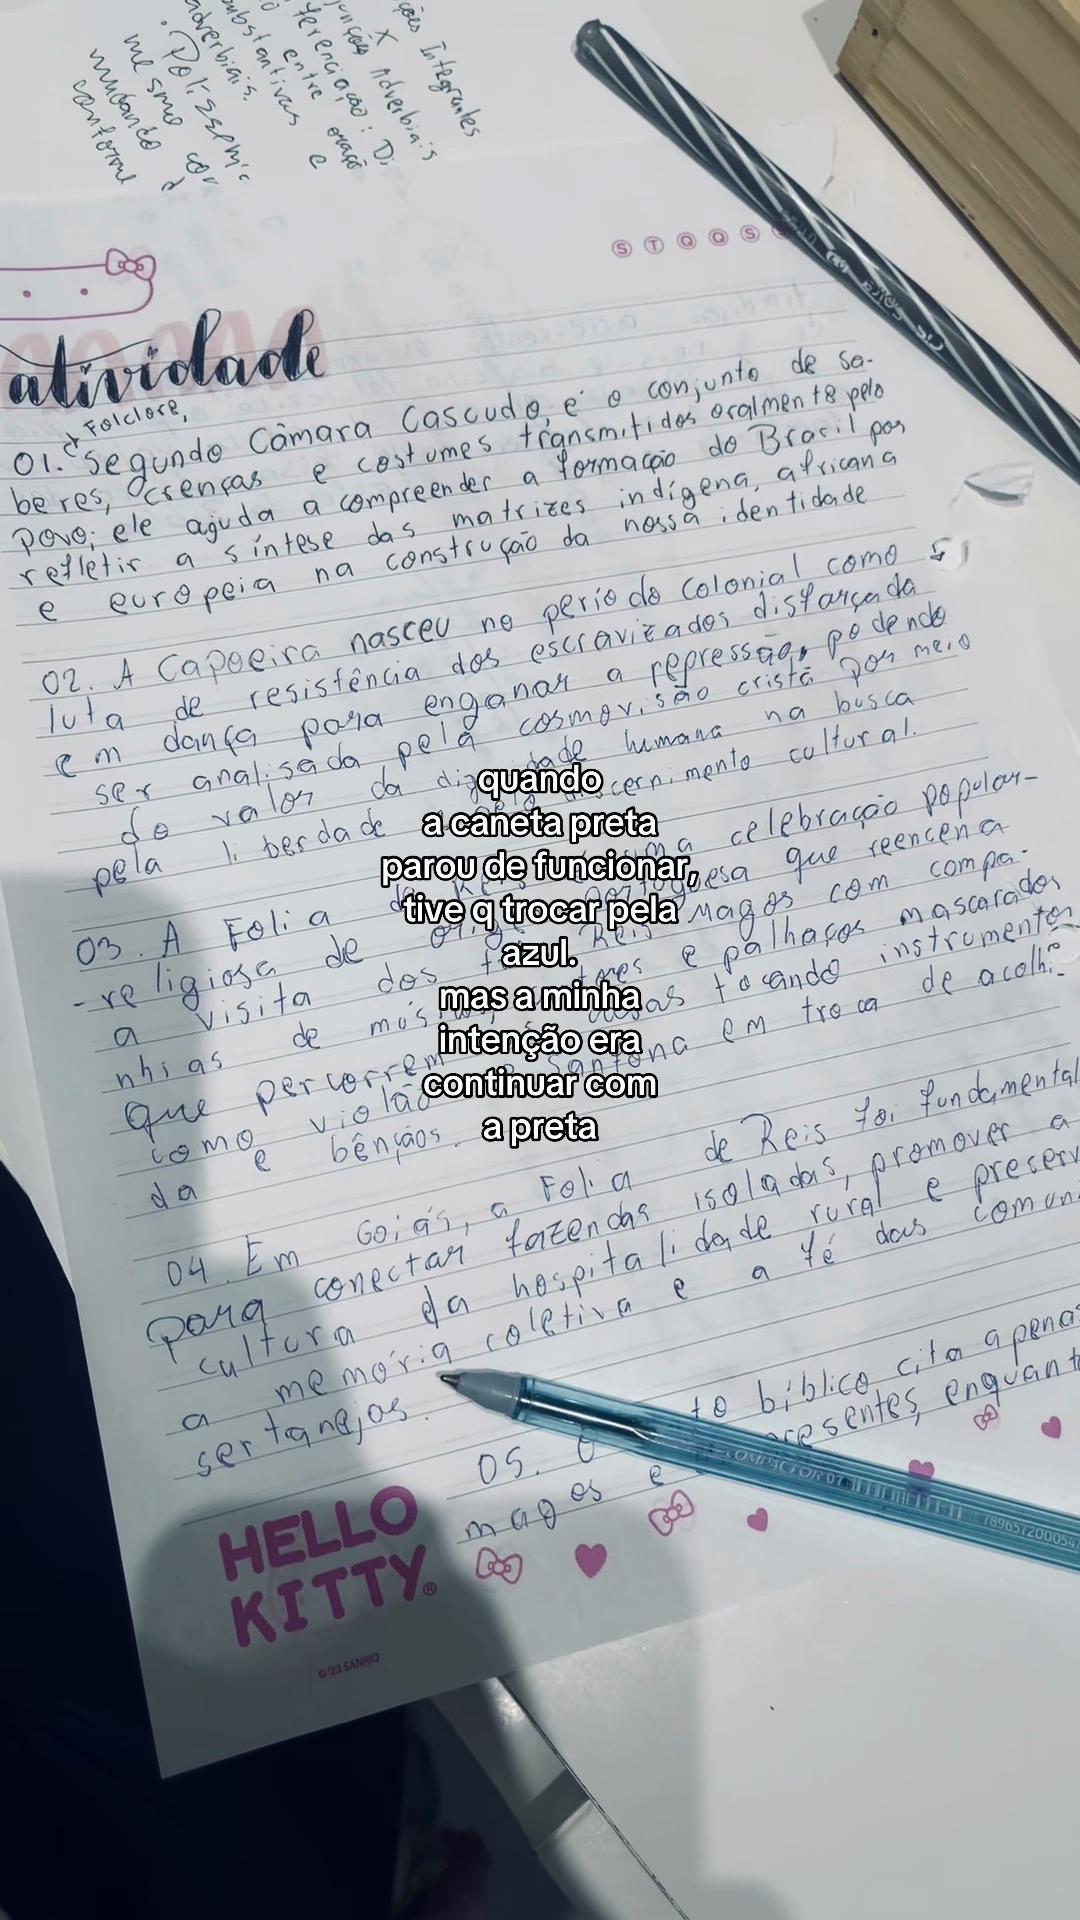 ções Integrantes
X Adverbiais
erenciação: Di
entre oração
substantivas e
adverbiais.
. Polissemi
mesmo
mudando d
conforme
S T Q Q S
atividade
Folclore,
01. Segundo Câmara Cascudo, é o conjunto de sa-
beres, crenças e costumes transmitidos oralmente pelo
povo; ele ajuda a compreender a formação do Brasil por
refletir a síntese das matrizes indígena, africana
e europeia na construção da nossa identidade
02. A Capoeira nasceu no período colonial como
luta de resistência dos escravizados disfarçada
em dança para enganar a repressão, podendo
ser analisada pela cosmovisão cristã por meio
do valor da dignidade humana na busca
pela liberdade discernimento cultural.
quando
a caneta preta
parou de funcionar,
tive q trocar pela
azul.
mas a minha
intenção era
continuar com
a preta
03. A Folia de Reis celebração popular-
-religiosa de portuguesa que reencena
a visita dos Reis Magos com compa-
nhias de e palhaços mascarados
que percorrem casas tocando instrumentos
como violão e sanfona em troca de acolhi-
da e bênçãos.
04. Em Goiás, a Folia de Reis foi fundamental
para conectar fazendas isoladas, promover a
cultura da hospitalidade rural e preserv
a memória coletiva e a fé das comun
sertanejas.
05. O to bíblico cita apenas
magos e presentes, enquant
COMPACTOR 07
HELLO
KITTY®
©'23 SANRIO